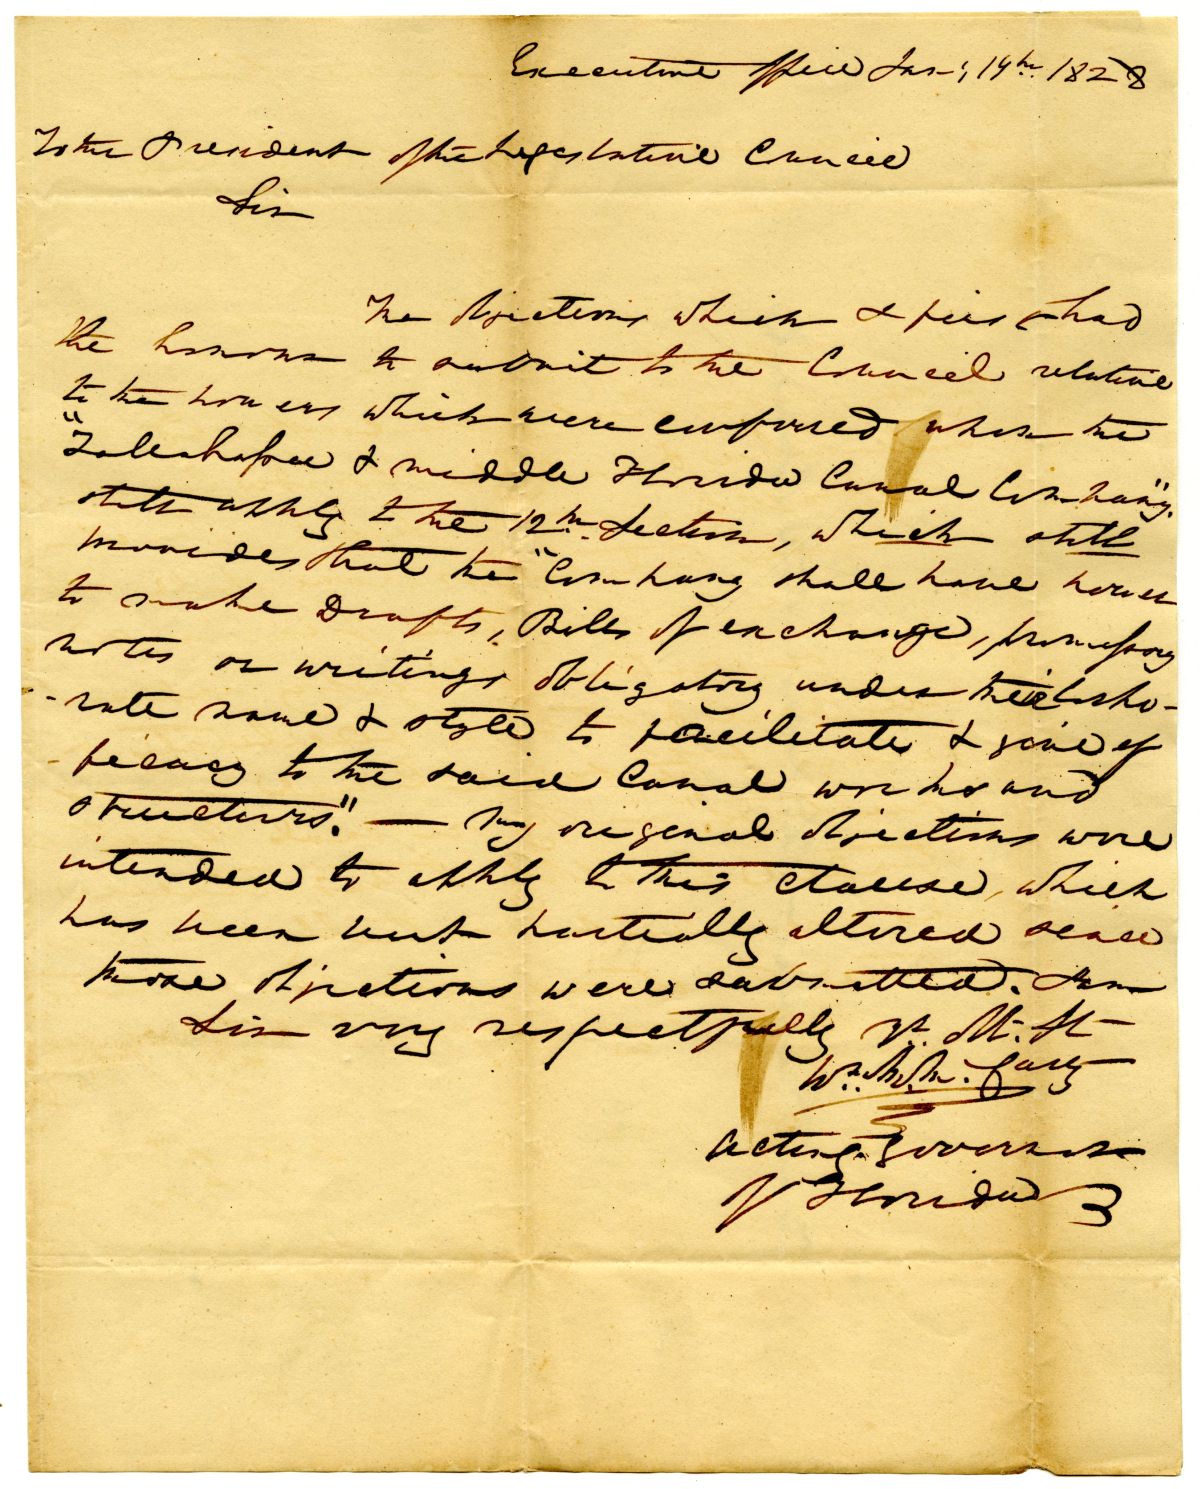 Executive office Jan: 14th. 1828
To the President of the Legislative Council
Sir
The objections which I first had
the honour to submit to the Council relative
to the powers which were conferred upon the
"Tallahassee & middle Florida Canal Company",
still apply to the 12th. Section, which still
provides that the "Company shall have power
to make Drafts, Bills of exchange, promissory
notes or writings obligatory under their corpo-
-rate name & style to facilitate & give ef
-ficacy to the said Canal works and
structures." — My original objections were
intended to apply to this clause, which
has been but partially altered since
those objections were submitted. I am
Sir very respectfully yr. Ob. St
Wm. M. McCarty
Acting Governor
of Florida